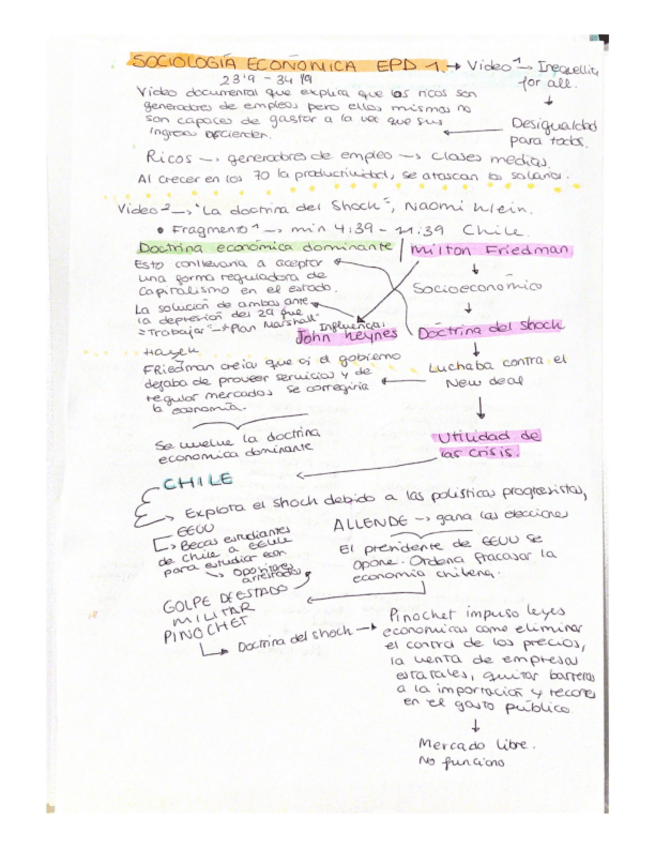 SOCIOLOGÍA ECONOMICA EPD 1. → Video 1 → Inequality for all.
23'9 - 34'19
Video documental que explica que los ricos son
generadores de empleos pero ellos mismos no
son capaces de gastar a la vez que sus
ingresos ascienden.
Desigualdad
para todos.
Ricos → generadores de empleo → clases medias.
Al crecer en los 70 la productividad, se atascan los salarios.
Video 2 → "La doctrina del Shock", Naomi Klein.
• Fragmento 1 → min 4:39 - 11:39 Chile.
Doctrina economica dominante / Milton Friedman
Esto conllevaria a aceptar
una forma reguladora de
capitalismo en el estado.
Socioeconómico
La solución de ambas ante
la depresión del 29 fue
= Trabajar" → Plan Marshall"
Influencia:
John Keynes
Doctrina del shock
Hayek
Friedman creia que si el gobierno
dejaba de proveer servicios y de
regular mercados se corregiria
la economía.
Luchaba contra el
New deal
Se vuelve la doctrina
economica dominante
Utilidad de
las crisis.
CHILE
Explota el shock debido a las políticas progresistas,
EEUU
Becas estudiantes
de Chile a EEUU
para estudiar econ
→ Opositores
arrestados
ALLENDE → gana las elecciones
El presidente de EEUU se
opone. Ordena fracasar la
economía chilena.
GOLPE DE ESTADO
MILITAR
PINOCHET
Doctrina del shock →
Pinochet impuso leyes
economicas como eliminar
el control de los precios,
la venta de empresas
estatales, quitar barreras
a la importación y recortes
en el gasto público
Mercado libre.
No funciono